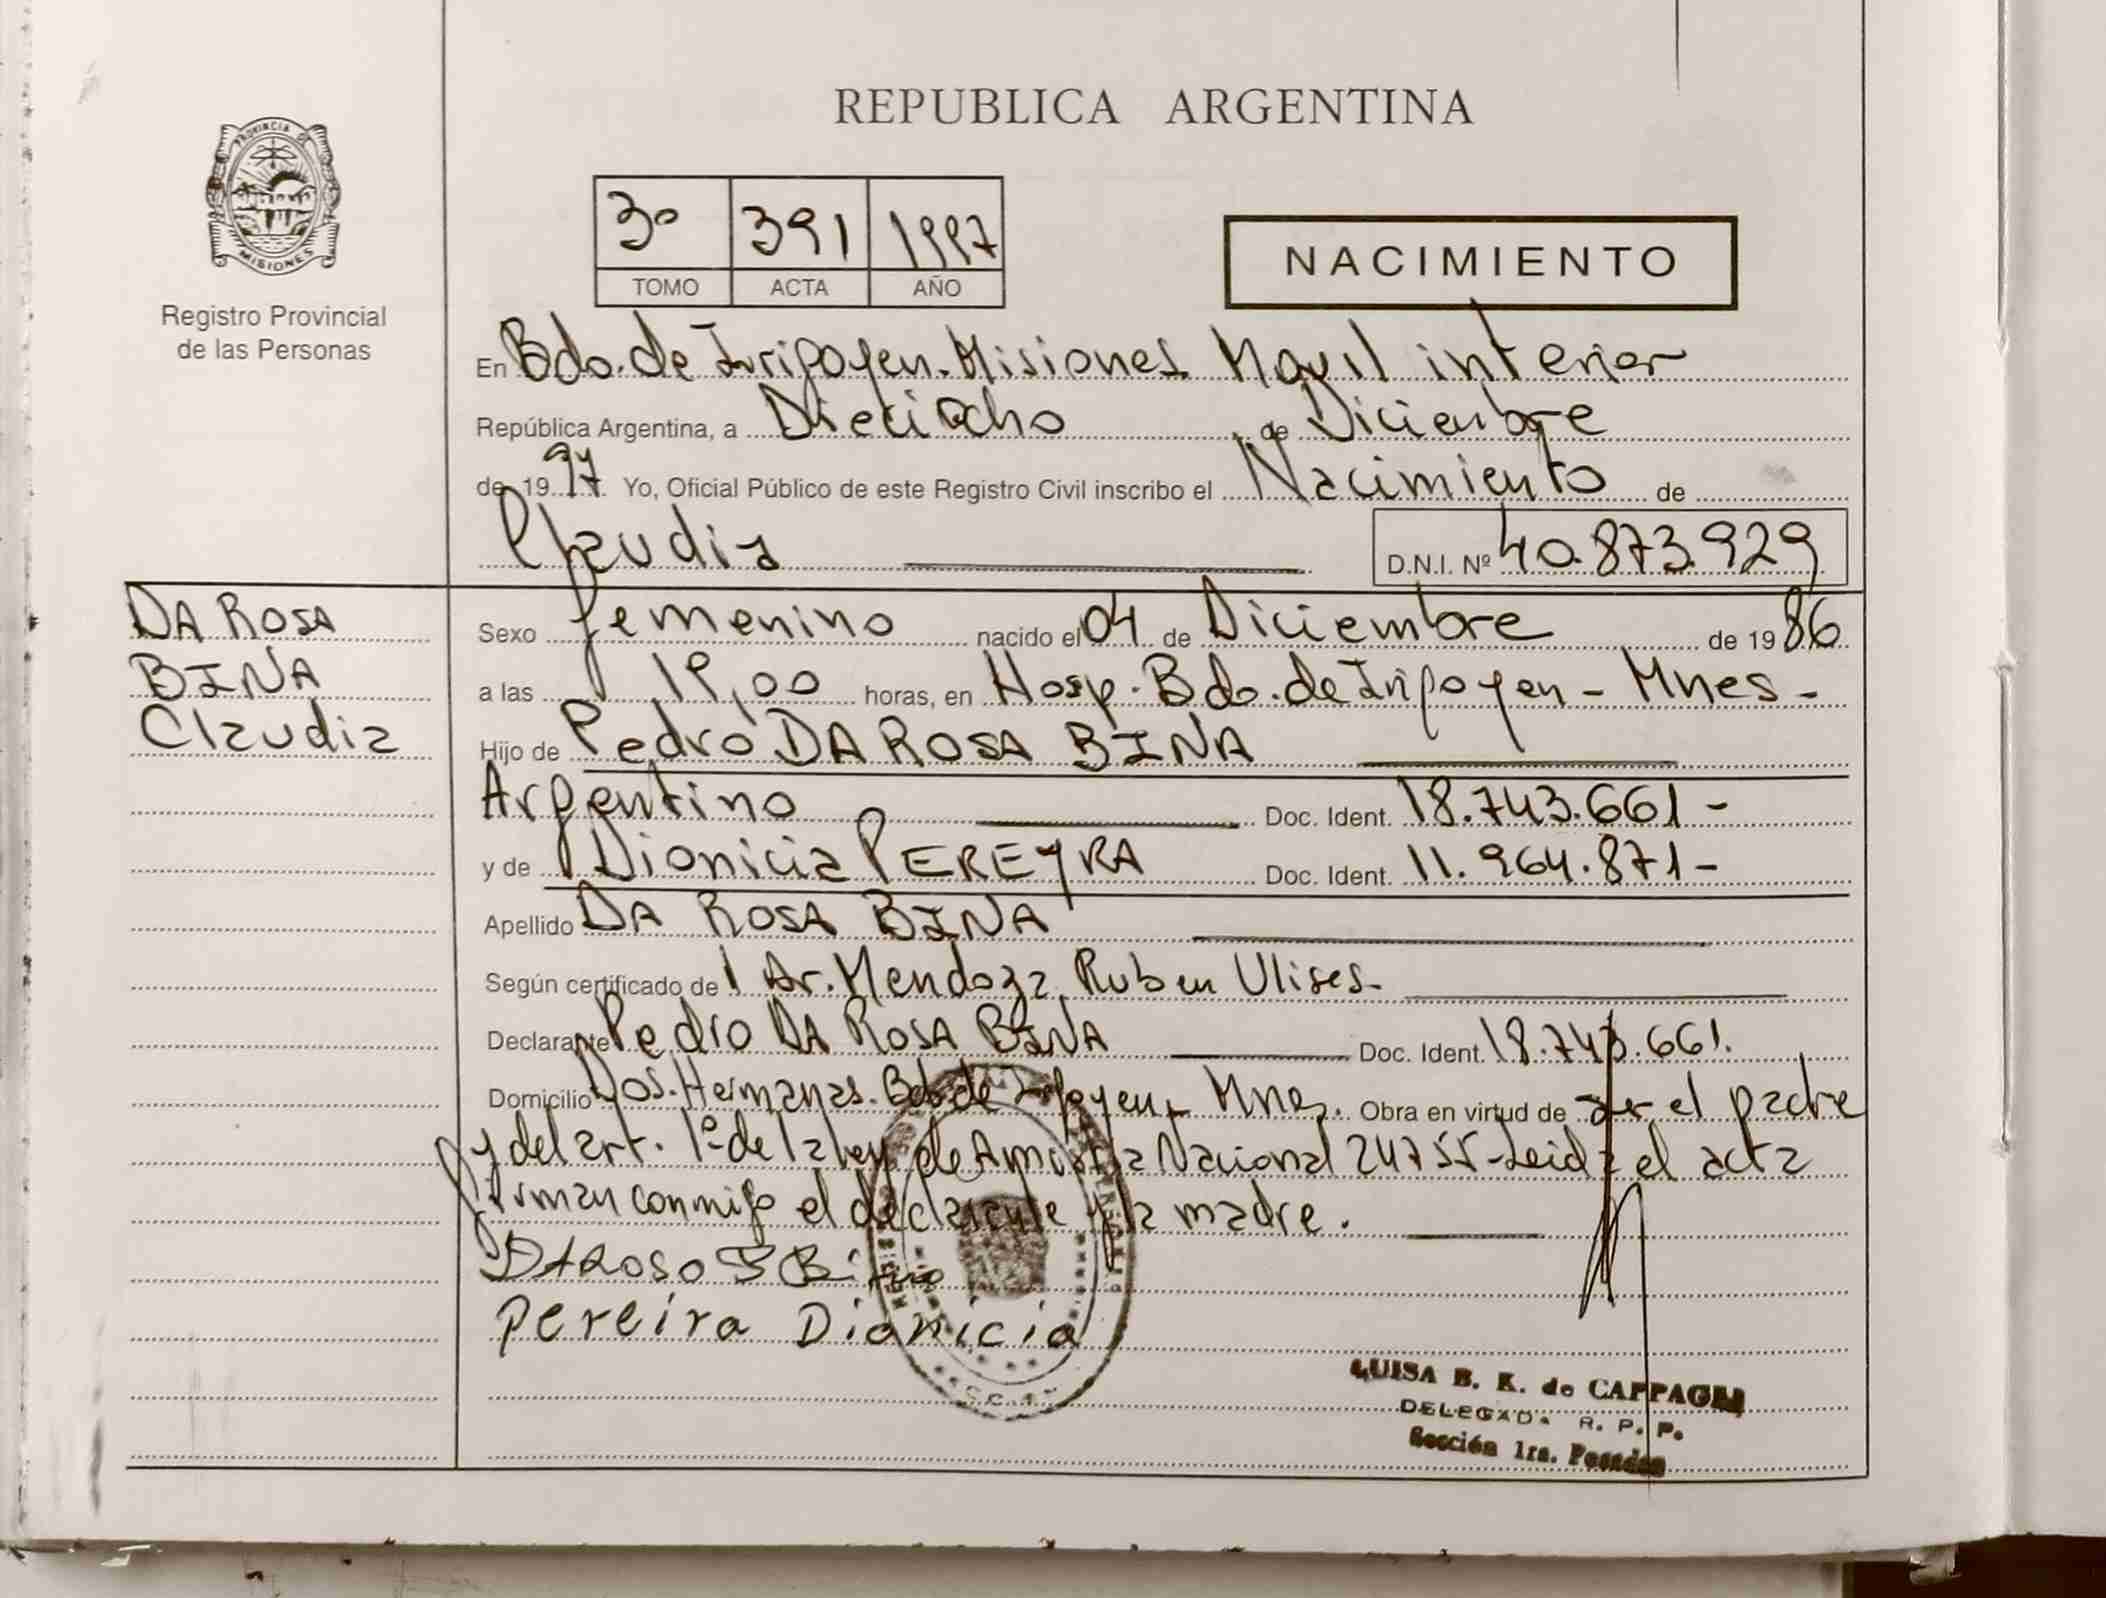 REPUBLICA ARGENTINA
PROVINCIA
MISIONES
Registro Provincial
de las Personas
3º 391 1997
TOMO ACTA AÑO
NACIMIENTO
En Bdo. de Irigoyen. Misiones Movil interior
República Argentina, a Dieciocho de Diciembre
de 1997 Yo, Oficial Público de este Registro Civil inscribo el Nacimiento de
Claudia D.N.I. Nº 40.873.929
DA ROSA
BINA
Claudia
Sexo femenino nacido el 04 de Diciembre de 1986
a las 19,00 horas, en Hosp. Bdo. de Irigoyen - Mnes -
Hijo de Pedro DA ROSA BINA
Argentino Doc. Ident. 18.743.661 -
y de Dionicia PEREYRA Doc. Ident. 11.964.871 -
Apellido DA ROSA BINA
Según certificado de l Dr. Mendoza Ruben Ulises -
Declarante Pedro DA ROSA BINA Doc. Ident. 18.743.661.
Domicilio Dos Hermanas. Bdo de Irigoyen - Mnes. Obra en virtud de ser el padre
y del art. 1º de la ley de Amnistia Nacional 24755 - Leida el acta
firman conmigo el declarante y la madre.
DAROSO Bina
Pereira Dionicia
LUISA B. K. de CAPPAGLI
DELEGADA R. P. P.
Sección 1ra. Posadas